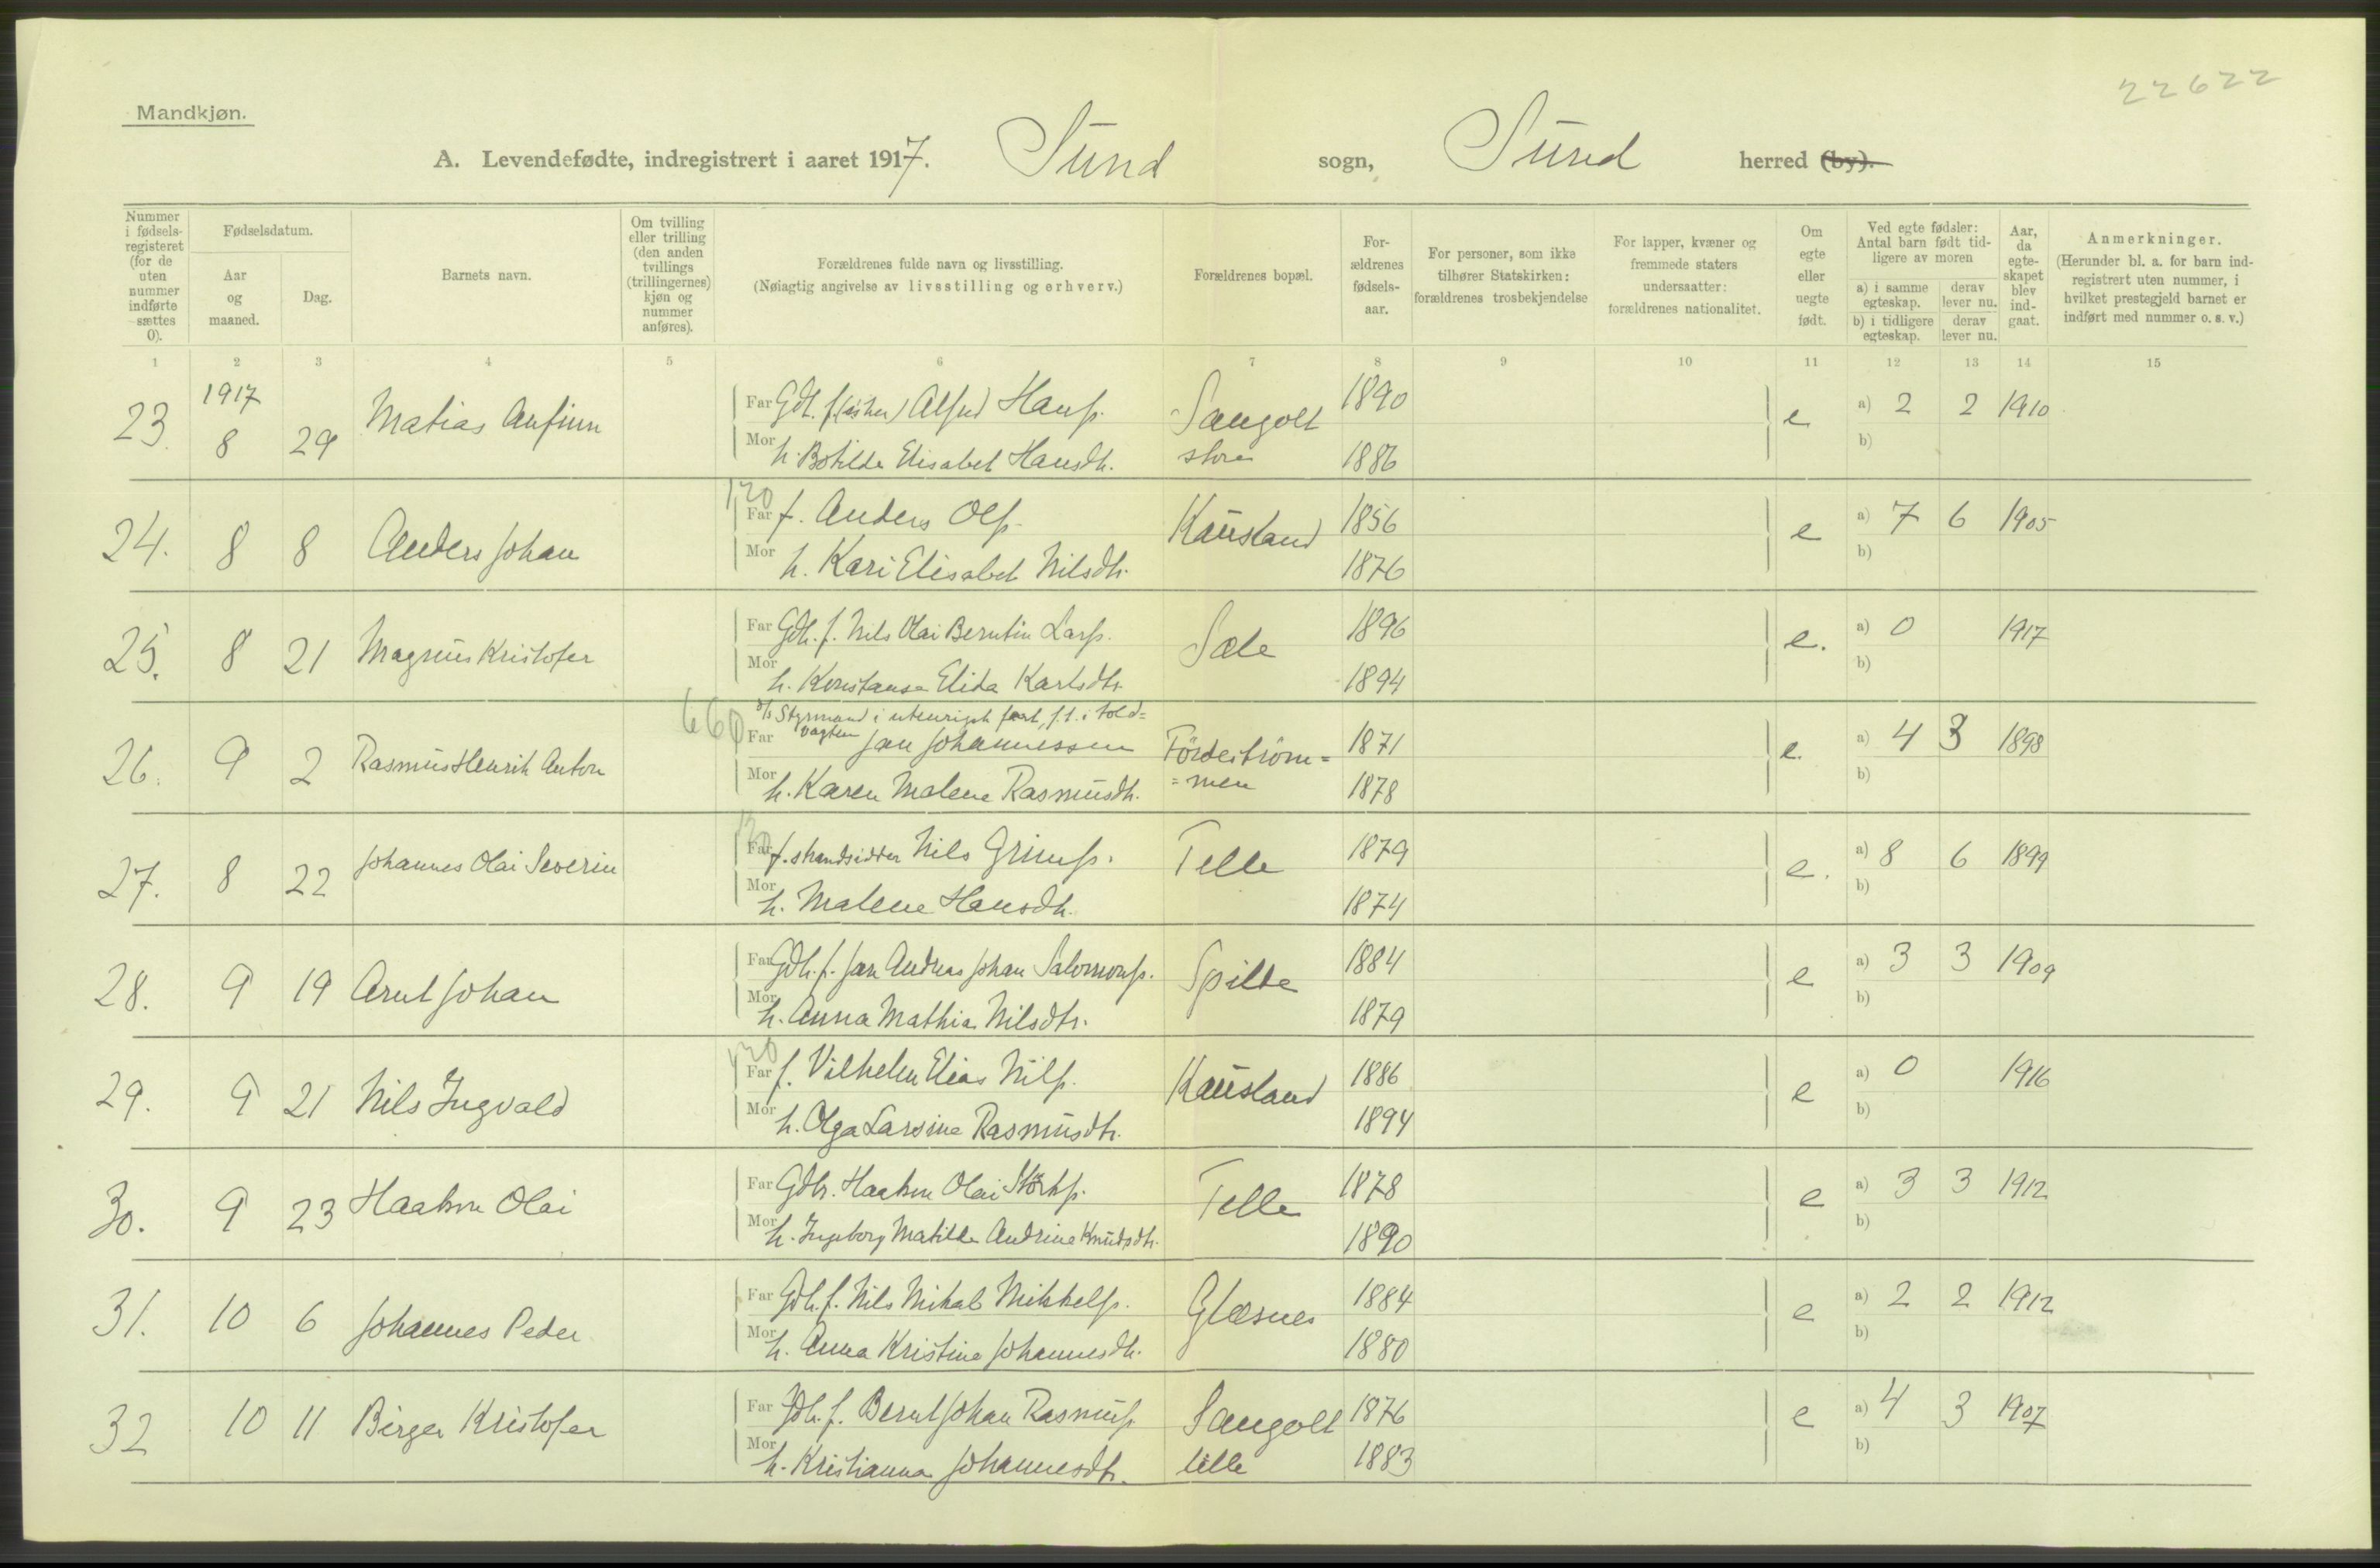 22622
Mandkjøn.
A. Levendefødte, indregistrert i aaret 1917. Sund sogn, Sund herred (by).
Nummer i fødsels-registeret (for de uten nummer indførte sættes 0).
Fødselsdatum.
Aar og maaned.
Dag.
Barnets navn.
Om tvilling eller trilling (den anden tvillings (trillingernes) kjøn og nummer anføres).
Forældrenes fulde navn og livsstilling.
(Nøiagtig angivelse av livsstilling og erhverv.)
Forældrenes bopæl.
For-ældrenes fødsels-aar.
For personer, som ikke tilhører Statskirken: forældrenes trosbekjendelse
For lapper, kvæner og fremmede staters undersaatter: forældrenes nationalitet.
Om egte eller uegte født.
Ved egte fødsler: Antal barn født tid-ligere av moren
a) i samme egteskap. derav lever nu.
b) i tidligere egteskap. derav lever nu.
Aar, da egte-skapet blev ind-gaat.
Anmerkninger.
(Herunder bl. a. for barn ind-registrert uten nummer, i hvilket prestegjeld barnet er indført med nummer o. s. v.)
1 2 3 4 5 6 7 8 9 10 11 12 13 14 15
1917
23. 8 29 Matias Anfinn Far Gdl. f.(isker) Alfred Hanss. Sangolt 1890 e a) 2 2 1910
Mor h. Botilde Elisabet Hansdtr. store 1886 b)
120
24. 8 8 Anders Johan Far f. Anders Ols. Kausland 1856 e a) 7 6 1905
Mor h. Kari Elisabet Nilsdtr. 1876 b)
25. 8 21 Magnus Kristofer Far Gdbr. f. Nils Olai Berntin Larss. Sæle 1896 e. a) 0 1917
Mor h. Konstanse Elida Karlsdtr. 1894 b)
660 Styrmand i utenrigsk fart, f.t. i told=
26. 9 2 Rasmus Henrik Anton Far vagten Jan Johannessen Fördeström= 1871 e. a) 4 3 1898
Mor h. Karen Malene Rasmusdtr. =men 1878 b)
27. 8 22 Johannes Olai Severin Far f. strandsidder Nils Grimss. Telle 1879 e. a) 8 6 1899
Mor h. Malene Hansdtr. 1874 b)
28. 9 19 Arnt Johan Far Gdbr. f. Jan Andreas Johan Salomons. Spilde 1884 e a) 3 3 1909
Mor h. Anna Mathia Nilsdtr. 1879 b)
120
29. 9 21 Nils Ingvald Far f. Vilhelm Elias Nilss. Kausland 1886 e a) 0 1916
Mor h. Olga Larsine Rasmusdtr. 1894 b)
30. 9 23 Haakon Olai Far Gdbr. Haakon Olai Störks. Telle 1878 e a) 3 3 1912
Mor h. Ingeborg Matilde Andrine Knudsdtr. 1890 b)
31. 10 6 Johannes Peder Far Gdbr. f. Nils Mikal Mikkels. Glæsnes 1884 e a) 2 2 1912
Mor h. Anna Kristine Johannesdtr. 1880 b)
32 10 11 Birger Kristofer Far Gdbr. f. Bernt Johan Rasmuss. Sangolt 1876 e a) 4 3 1907
Mor h. Kristianna Johannesdtr. lille 1883 b)